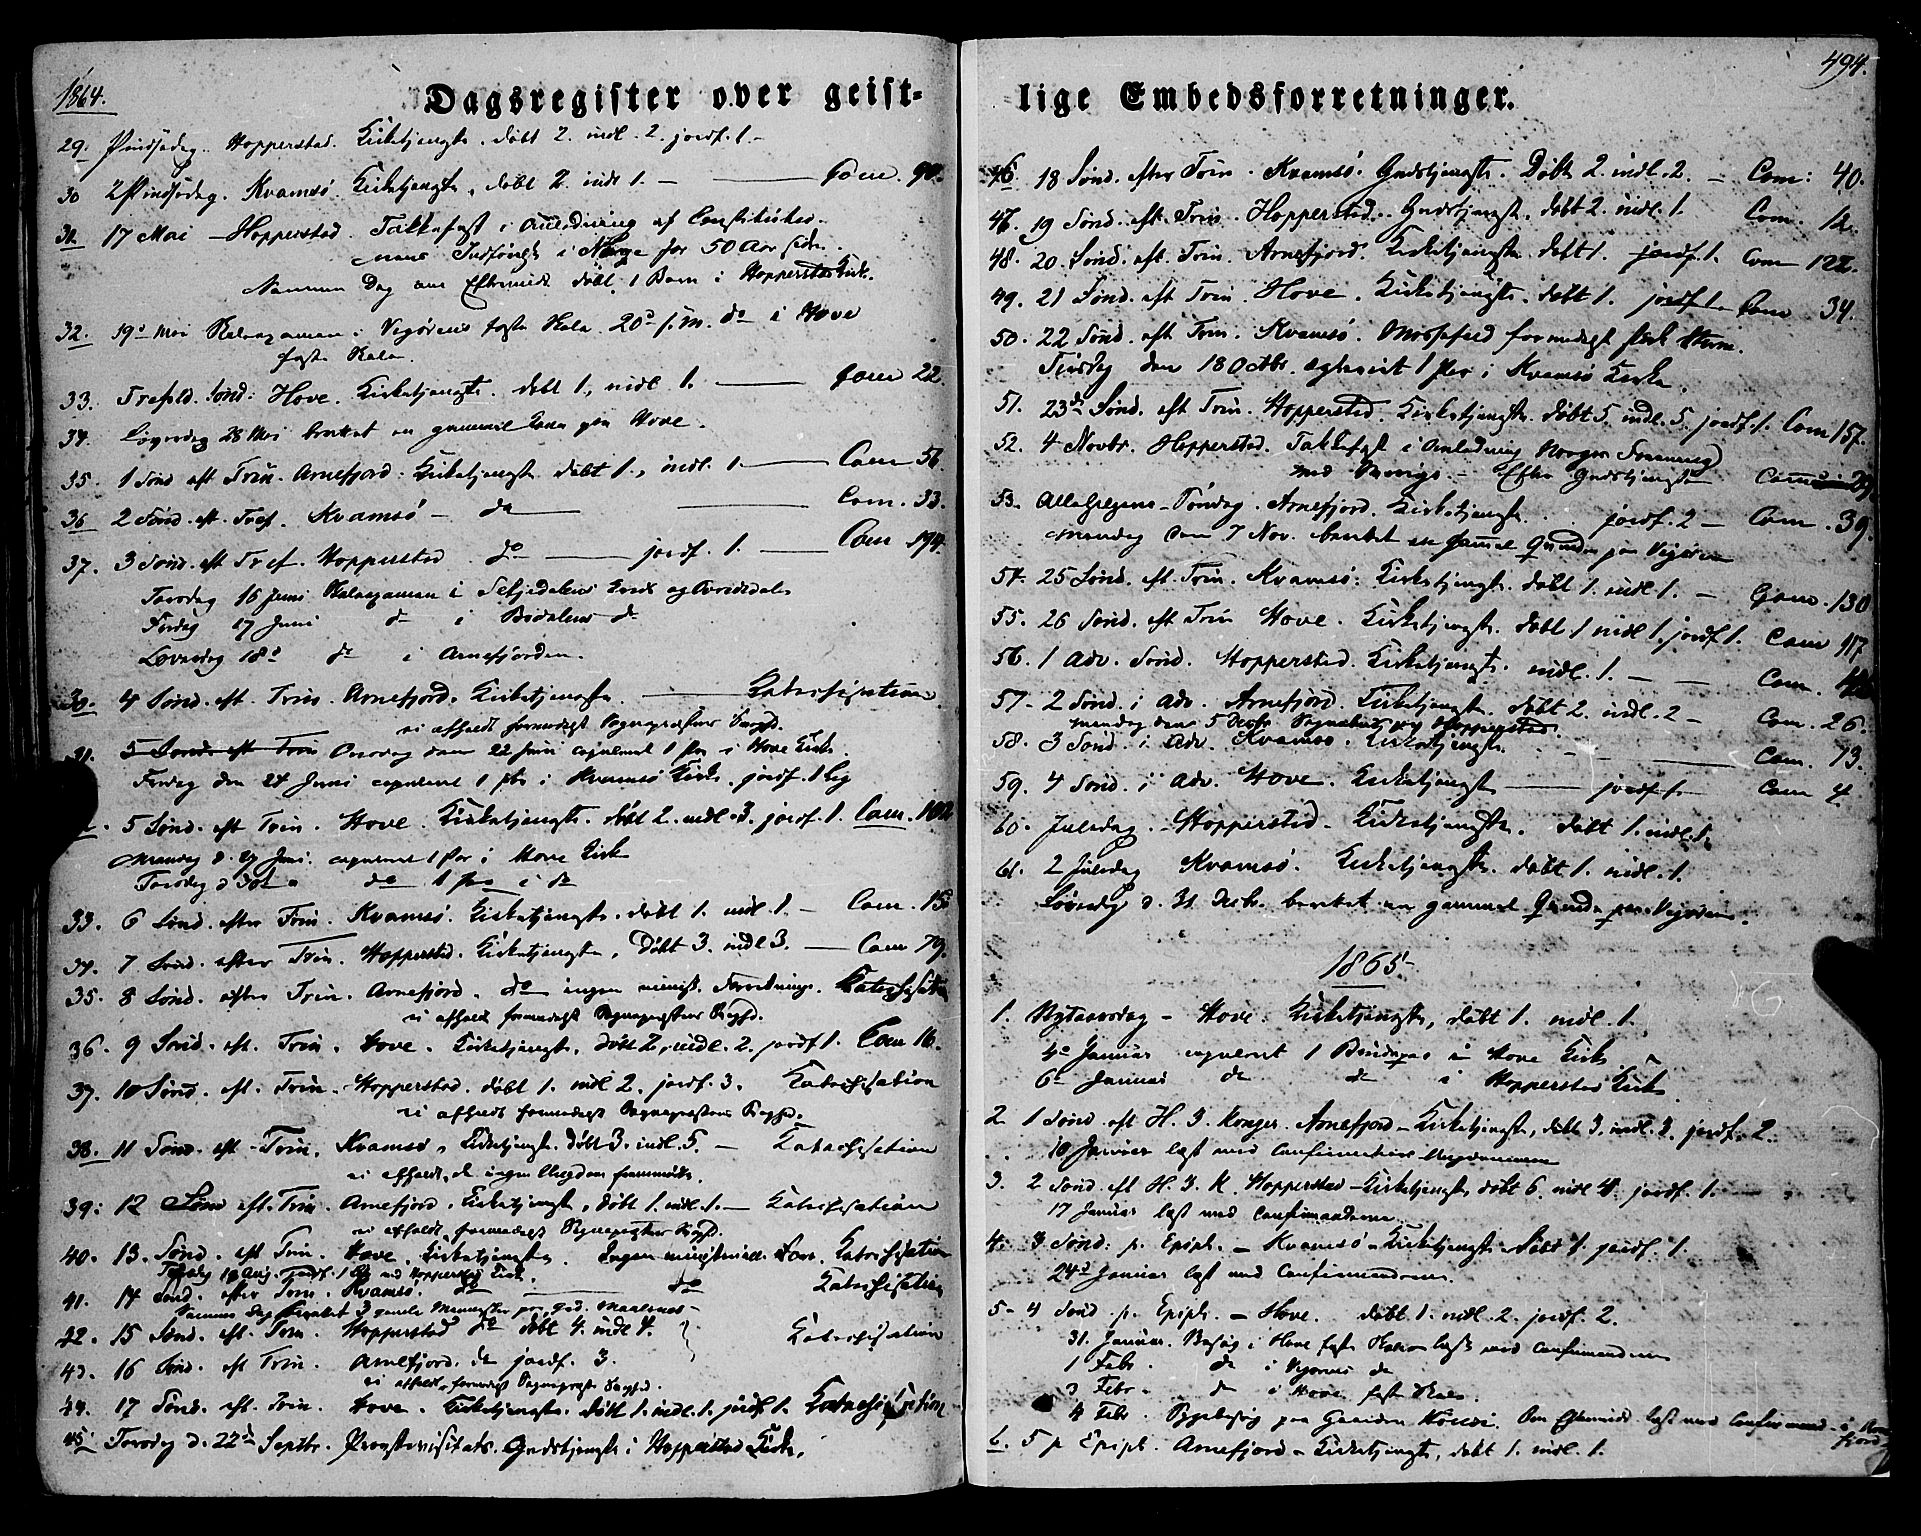 1864.
Dagsregister over geist-
29. Pindsedag. Hopperstad. Kirketjeneste. døbt 2. indl. 2. jordf. 1.
30 2 Pindsedag. Kvamsø. Kirketjeneste, døbt 2. indl. 1. — Com. 90.
31. 17 Mai — Hopperstad. Takkefest i Anledning af Constitutio-
nens Indførsel i Norge for 50 Aar siden.
Samme Dag om Eftermidd. døbt 1 Barn i Hopperstad Kirke.
32. 19de Mai Skoleexamen i Vigørens faste Skole. 20de f. M. do i Hove
faste Skole.
33. Trefold. Sønd: Hove. Kirketjeneste. døbt 1, indl. 1. — Com 22
34. Løverdag 28 Mai berettet en gammel Kone paa Hove.
35. 1 Sønd eft Trin. Arnefjord. Kirketjeneste døbt 1., indl. 1. — Com 56.
36 2 Sønd. eft. Tref. Kvamsø — do — Com. 33.
37. 3 Sønd. eft Tref. Hopperstad do — jordf. 1. — Com 194.
Torsdag 16 Juni Skoleexamen i
Fredag 17 Juni do i
Løverdag 18de do i Arnefjorden.
4 Sønd. eft. Trin. Arnefjord. Kirketjeneste. — Katechisation
ei afholdt formedelst Sognepræstens Svagh.
5 Sønd. eft Trin Onsdag den 22 Juni copuleret 1 Par i Hove Kirke.
Fredag den 24 Juni copuleret 1 Par i Kvamsø Kirke. jordf. 1 Lig
5 Sønd. eft Trin. Hove. Kirketjeneste. døbt 2. indl. 3. jordf. 1. Com. 100
Mandag d. 27 Juni. copuleret 1 Par i Hove Kirke
Torsdag d 30te do 1 Par i do
33. 6 Sønd. efter Trin. Kvamsø. Kirketjeneste. døbt 1. indl. 1. — Com. 15
34. 7 Sønd. efter Trin. Hopperstad. Kirketjeneste, Døbt 3. indl 3. — Com 79.
35. 8 Sønd. efter Trin. Arnefjord. do ingen minist. Forretninge. Katechisation
ei afholdt formedelst Sognepræstens Svagh.
36. 9 Sønd. eft. Trin. Hove. Kirketjeneste, døbt 2, indl. 2. jordf 1. Com 16.
37. 10 Sønd. eft. Trin. Hopperstad. døbt 1. indl 2. jordf. 3. Katechisation
ei afholdt formedelst Sognepræstens Svagh.
38. 11 Sønd. eft. Trin. Kvamsø. Kirketjeneste. døbt 3. indl. 5. — Katechisation
ei afholdt, da ingen Ungdom fremmødte.
39. 12 Sønd eft. Trin. Arnefjord. Kirketjeneste, døbt 1. indl. 1. — Katechisation
ei afholdt formedelst Sognepræstens Svagh.
40. 13. Sønd. eft Trin. Hove. Kirketjeneste. Ingen ministeriell. Forr. Katechisation
jordf. 1 Lig ved Hopperstad Kirke.
41. 14 Sønd. efter Trin. Kvamsø. do — do Katechisation
Samme Dag berettet 3 gamle Mennesker paa
42. 15 Sønd. eft. Trin. Hopperstad do døbt 4. indl 4. Katechisation
43. 16 Sønd. eft Trin. Arnefjord. do jordf. 3.
ei afholdt, formedelst Sognepræst. Svagh.
44. 17 Sønd. eft. Trin. Hove. Kirketjeneste. døbt 1. indl. 1. jordf 1. Katechisation
45. Torsdag d. 22de Septbr. Provstevisitats. Gudstjeneste i Hopperstad Kirke.
494.
lige Embedsforretninger.
46. 18 Sønd. efter Trin. Kvamsø. Gudstjeneste. Døbt 2. indl. 2. — Com: 40.
47. 19 Sønd. eft. Trin. Hopperstad. Gudstjeneste. døbt 2. indl. 1. Com. 12.
48. 20. Sønd. eft. Trin. Arnefjord. Kirketjeneste. døbt 1. jordf. 1. Com 122.
49. 21 Sønd. eft Trin. Hove. Kirketjeneste. døbt 1. jordf 1. Com 34.
50. 22 Sønd. eft Trin. Kvamsø. Messefald formedelst stærk Storm.
Tirsdag den 18 Octbr. egteviet 1 Par i Kvamsø Kirke.
51. 23de Sønd. eft Trin. Hopperstad. Kirketjeneste. døbt 5. indl. 5. jordf. 1. Com 157.
52. 4 Novbr. Hopperstad. Takkefest i Anledning Norges Forening
med Sverige. — Efter Gudstjeneste Com 29
53. Allehelgens-Søndag. Arnefjord. Kirketjeneste. jordf. 2 — Com. 39.
Mandag den 7 Nov. berettet en gammel Qvinde paa Vigøren
54. 25 Sønd. eft. Trin. Kvamsø. Kirketjeneste. døbt 1. indl 1. — Com. 130
55. 26 Sønd. eft Trin Hove. Kirketjeneste. døbt 1 indl 1. jordf 1. Com 117
56. 1 Adv. Sønd. Hopperstad. Kirketjeneste. indl. 1. — Com.
57. 2 Sønd. i Adv. Arnefjord Kirketjeneste. døbt 2. indl. 2 — Com. 26.
Mandag den 5 Decbr. Sognebud paa Hopperstad.
58. 3 Sønd. i Adv. Kvamsø. Kirketjeneste. — Com. 13.
59. 4 Sønd. i Adv. Hove. Kirketjeneste — jordf 1. — Com 4.
60. Juledag. Hopperstad. Kirketjeneste. døbt 1. indl. 1.
61. 2 Juledag Kvamsø. Kirketjeneste. døbt 1. indl. 1.
Løverdag d. 31 Decbr. berettet en gammel Qvinde paa Vigøren.
1865
1. Nytaarsdag — Hove. Kirketjeneste, døbt 1. indl. 1.
4de Januar copuleret 1 Brudepar i Hove Kirke
6te Januar do do i Hopperstad Kirke.
2. 1 Sønd eft H. 3. Konger. Arnefjord — Kirketjeneste, døbt 3. indl. 3. jordf. 2.
10 Januar læst med Confirmanderne
3. 2 Sønd eft H. 3. K. Hopperstad — Kirketjeneste døbt 6. indl 4. jordf. 1.
17 Januar læst med Confirmanderne.
4. 3 Sønd. p. Epiph. — Kvamsø — Kirketjeneste. Døbt 1. jordf. 1.
24de Januar læst med Confirmanderne.
5. 4 Sønd p. Epiph. — Hove. døbt 1. indl. 2. jordf. 2.
31. Januar. Besøg i Hove faste Skole læst med Confirmanderne
1 Febr. do i Vigøren do
3 Febr. do i Hove faste Skole
4 Febr. Sygebesøg paa Gaarden
6. 5 p Epiph. Arnefjord — Kirketjeneste, døbt 1. indl. 1.